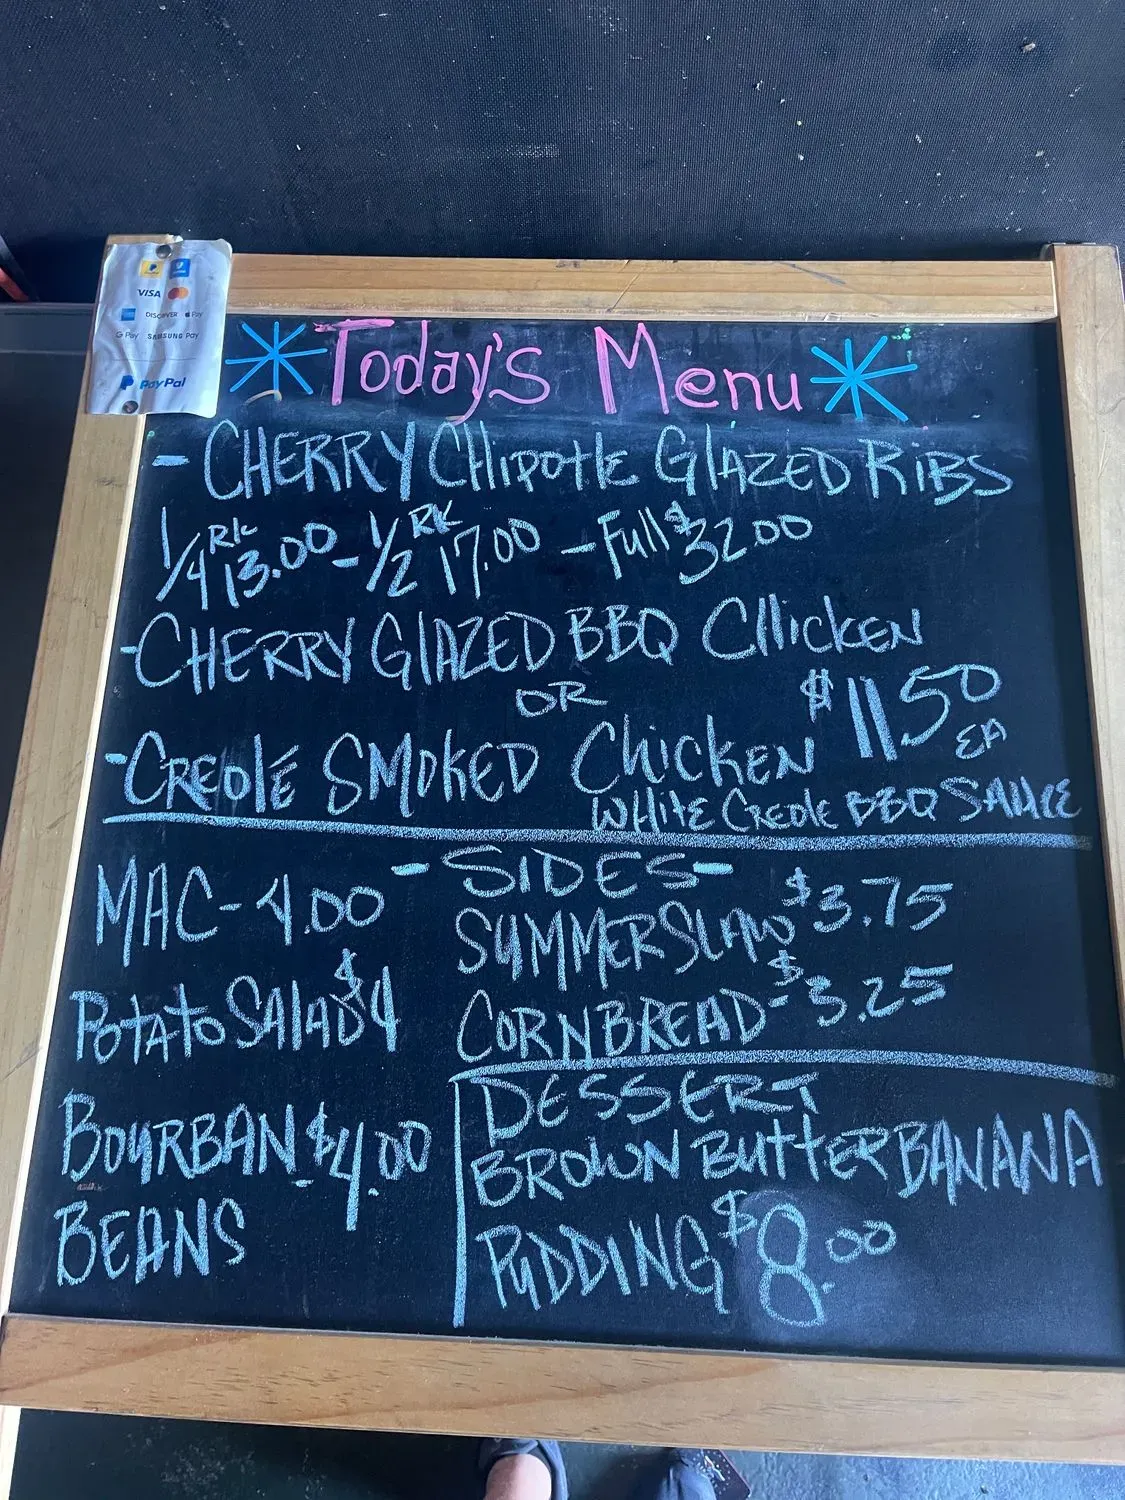 VISA
DISCOVER Pay
G Pay SAMSUNG Pay
PayPal
Today's Menu
- CHERRY CHipotlE GlAZED RiBS
1/4 RK 13.00 - 1/2 RK 17.00 - Full $32.00
- CHERRY GlAZED BBQ CHicKEN
OR
$11.50 EA
- CREOlE SMOKED ChicKEN
WHitE CREOlE BBQ SAUCE
- SIDES -
MAC - 4.00
SUMMER SLAW $3.75
POtAtO SAlAD $4
CORNBREAD - $3.25
BOURBAN - $4.00
BEANS
DESSERT
BROWN ButtER BANANA
PUDDING $8.00